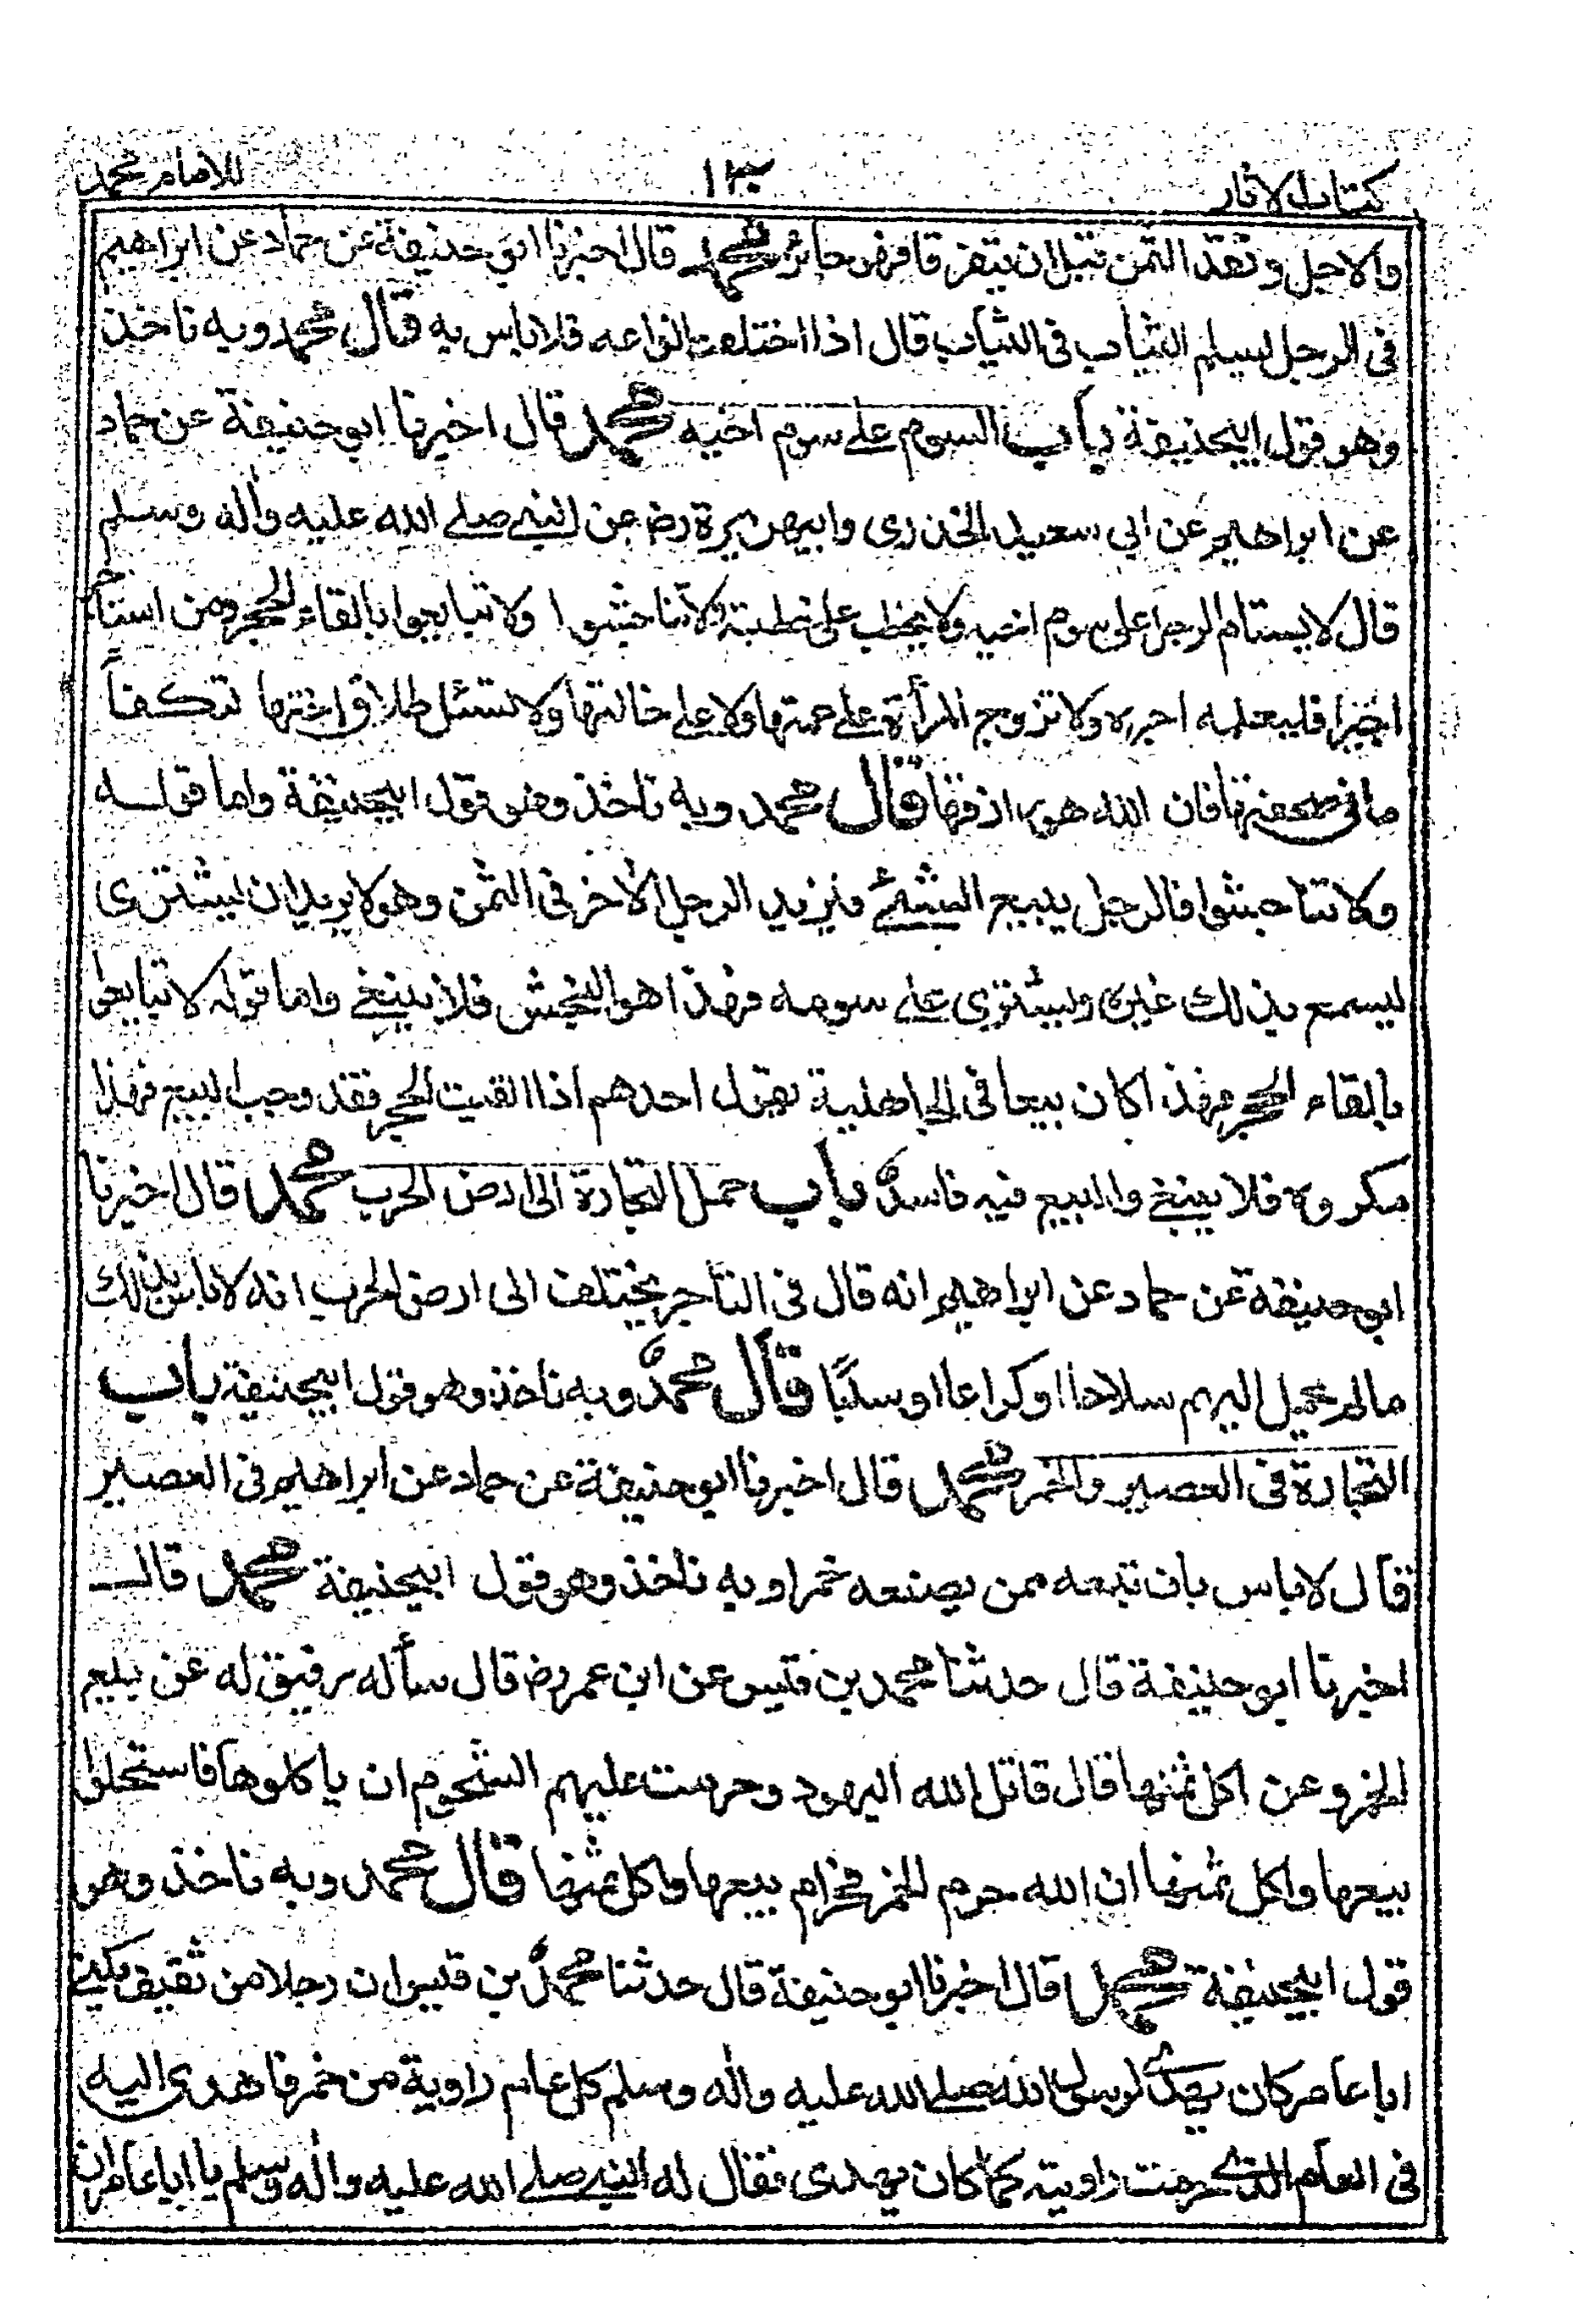 كتاب الاثار ١٣٠ للامام محمد
والاجل ونقد الثمن قبل ان يتفرقا فهو جائز محمد قال اخبرنا ابو حنيفة عن حماد عن ابراهيم
فى الرجل يسلم الثياب فى الثياب قال اذا اختلفت انواعه فلا باس به قال محمد وبه ناخذ
وهو قول ابيحنيفة باب السوم على سوم اخيه محمد قال اخبرنا ابو حنيفة عن حماد
عن ابراهيم عن ابي سعيد الخدرى وابيهريرة رض عن النبى صلى الله عليه واله وسلم
قال لا يستام الرجل على سوم اخيه ولا يخطب على خطبته ولا تناجشوا ولا تبايعوا بالقاء الحجر ومن استاجر
اجيرا فليعلمه اجره ولا تزوج المرأة على عمتها ولا على خالتها ولا تسئل طلاق اختها لتكفأ
ما فى صحفتها فان الله هو رازقها قال محمد وبه ناخذ وهو قول ابيحنيفة واما قوله
ولا تناجشوا فالرجل يبيع الشئ فيزيد الرجل الاخر فى الثمن وهو لا يريد ان يشترى
ليسمع بذلك غيره ويشترى على سومه فهذا هو النجش فلا ينبغى واما قوله لا تبايعوا
بالقاء الحجر فهذا كان بيعا فى الجاهلية يقول احدهم اذا القيت الحجر فقد وجب البيع فهذا
مكروه فلا ينبغى والبيع فيه فاسد باب حمل التجارة الى ارض الحرب محمد قال اخبرنا
ابو حنيفة عن حماد عن ابراهيم انه قال فى التاجر يختلف الى ارض الحرب انه لا باس بذلك
مالم يحمل اليهم سلاحا او كراعا او سلبا قال محمد وبه ناخذ وهو قول ابيحنيفة باب
التجارة فى العصير والخمر محمد قال اخبرنا ابو حنيفة عن حماد عن ابراهيم فى العصير
قال لا باس بان تبيعه ممن يصنعه خمرا وبه ناخذ وهو قول ابيحنيفة محمد قال
اخبرنا ابو حنيفة قال حدثنا محمد بن قيس عن ابن عمر رض قال سأله رفيق له عن بيع
الخمر وعن اكل ثمنها قال قاتل الله اليهود وحرمت عليهم الشحوم ان ياكلوها فاستحلوا
بيعها واكل ثمنها ان الله حرم الخمر فحرام بيعها واكل ثمنها قال محمد وبه ناخذ وهو
قول ابيحنيفة محمد قال اخبرنا ابو حنيفة قال حدثنا محمد بن قيس ان رجلا من ثقيف يكنى
ابا عامر كان يهدى لرسول الله صلى الله عليه واله وسلم كل عام راوية من خمر فاهدى اليه
فى العام الذى حرمت راوية كما كان يهدى فقال له النبى صلى الله عليه واله وسلم يا ابا عامر ان